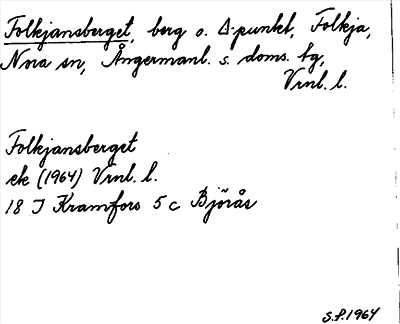 Folkjansberget, berg o. Δ-punkt, Folkja,
Nora sn, Ångermanl. s. doms. tg,
Vrnl. l.
Folkjansberget
ek (1964) Vrnl. l.
18 J Kramfors 5 c Björås
S.P. 1964